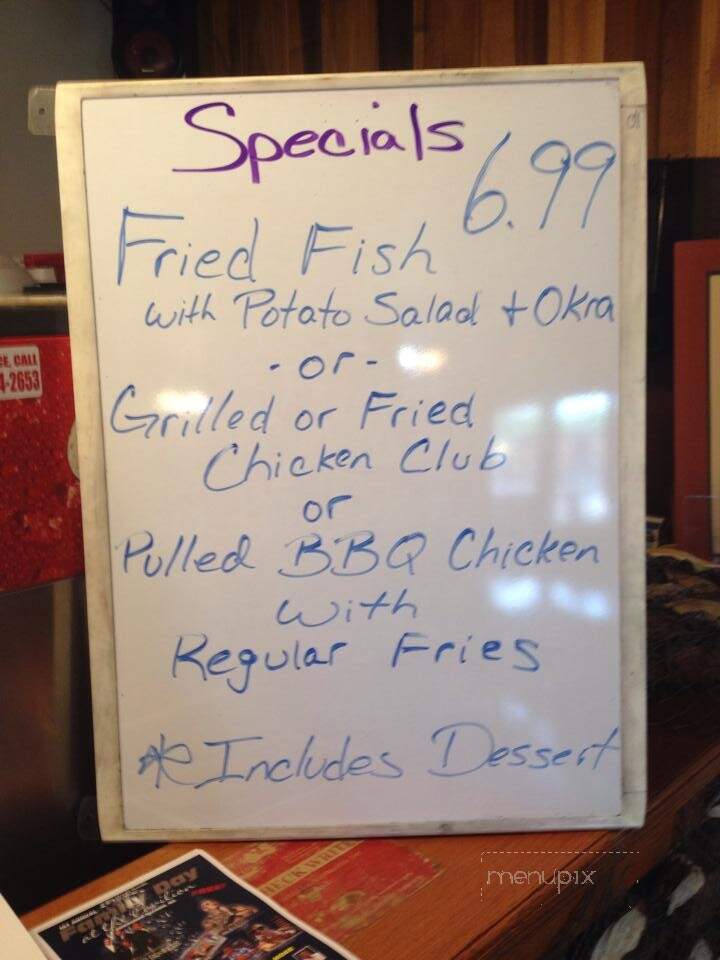 Specials
6.99
Fried Fish
with Potato Salad + Okra
- or -
Grilled or Fried
Chicken Club
or
Pulled BBQ Chicken
with
Regular Fries
* Includes Dessert
CE, CALL
4-2653
Family Day
menupix